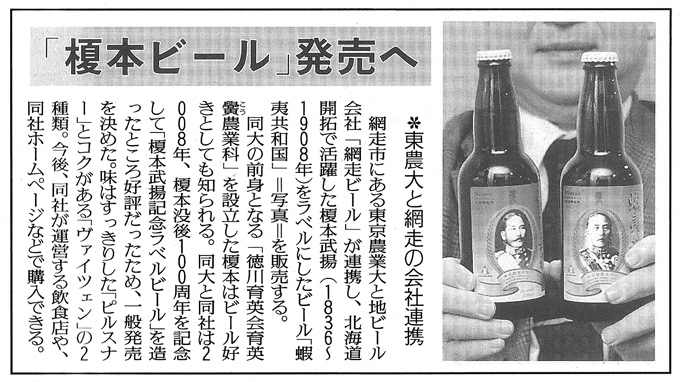 「榎本ビール」発売へ
＊東農大と網走の会社連携
網走市にある東京農業大と地ビール
会社「網走ビール」が連携し、北海道
開拓で活躍した榎本武揚（1836～
1908年）をラベルにしたビール「蝦
夷共和国」＝写真＝を販売する。
同大の前身となる「徳川育英会育英
黌農業科」を設立した榎本はビール好
こう
きとしても知られる。同大と同社は2
008年、榎本没後100周年を記念
して「榎本武揚記念ラベルビール」を造
ったところ好評だったため、一般発売
を決めた。味はすっきりした「ピルスナ
ー」とコクがある「ヴァイツェン」の2
種類。今後、同社が運営する飲食店や、
同社ホームページなどで購入できる。